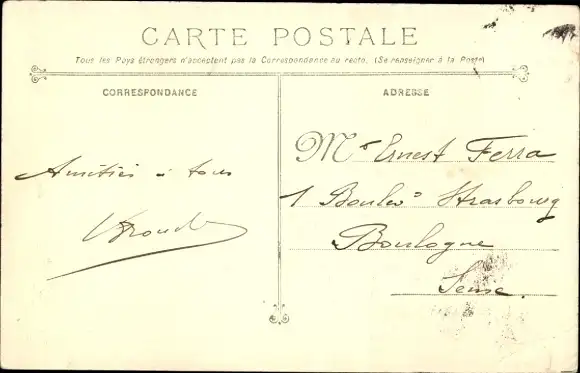 CARTE POSTALE
Tous les Pays étrangers n'acceptent pas la Correspondance au recto. (Se renseigner à la Poste)
CORRESPONDANCE
ADRESSE
Amitiés à tous
Mr Ernest Ferra
1 Boulevd Strasbourg
Boulogne
Seine.